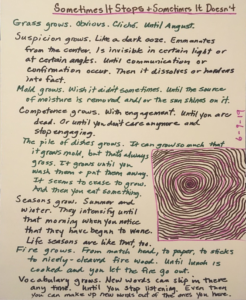 Sometimes It Stops & Sometimes It Doesn't
Grass grows. Obvious. Cliché. Until August.
Suspicion grows. Like a dark ooze. Emanates
from the center. Is invisible in certain light or
at certain angles. Until communication or
confirmation occur. Then it dissolves or hardens
into fact.
Mold grows. Wish it didn't sometimes. Until the source
of moisture is removed and/or the sun shines on it.
Competence grows. With engagement. Until you are
dead. Or until you don't care anymore and
stop engaging.
The pile of dishes grows. It can grow so much that
it grows mold, but that's always
gross. It grows until you
wash them & put them away.
It seems to cease to grow.
And then you eat something.
Seasons grow. Summer and
winter. They intensify until
that morning when you notice
that they have begun to wane.
Life seasons are like that, too.
Fire grows. From match head, to paper, to sticks
to nicely-cleaved fire wood. Until lunch is
cooked and you let the fire go out.
Vocabulary grows. New words can slip in there
any time. Until you stop listening. Even then
you can make up new words out of the ones you have.
6-9-17